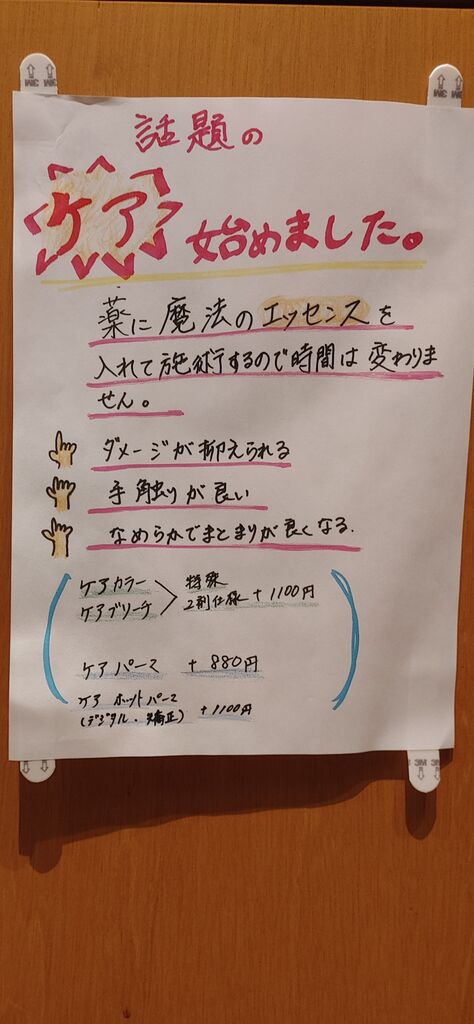 話題の
ケア 始めました。
薬に魔法のエッセンスを
入れて施術するので時間は変わりま
せん。
ダメージが抑えられる
手触りが良い
なめらかでまとまりが良くなる.
ケアカラー
ケアブリーチ
特殊
2剤仕様 +1100円
ケアパーマ +880円
ケア ホットパーマ
(デジタル・矯正) +1100円
3M
3M
3M
3M
3M